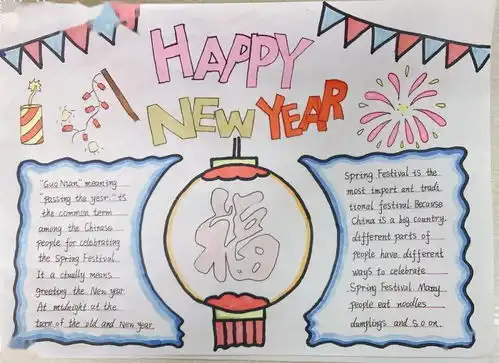 HAPPY
NEW YEAR
"Guo Nian" meaning
"passing the year" is
the common term
among the Chinese
people for celebrating
the Spring Festival
It a ctually means
greeting the New year
At midnight at the
turn of the old and New year
福
Spring Festival is the
most import ant tradi
tional festival. Because
China is a big country.
different parts of
people have different
ways to celebrate
Spring Festival Many
people eat noodles
dumplings and s.o on.